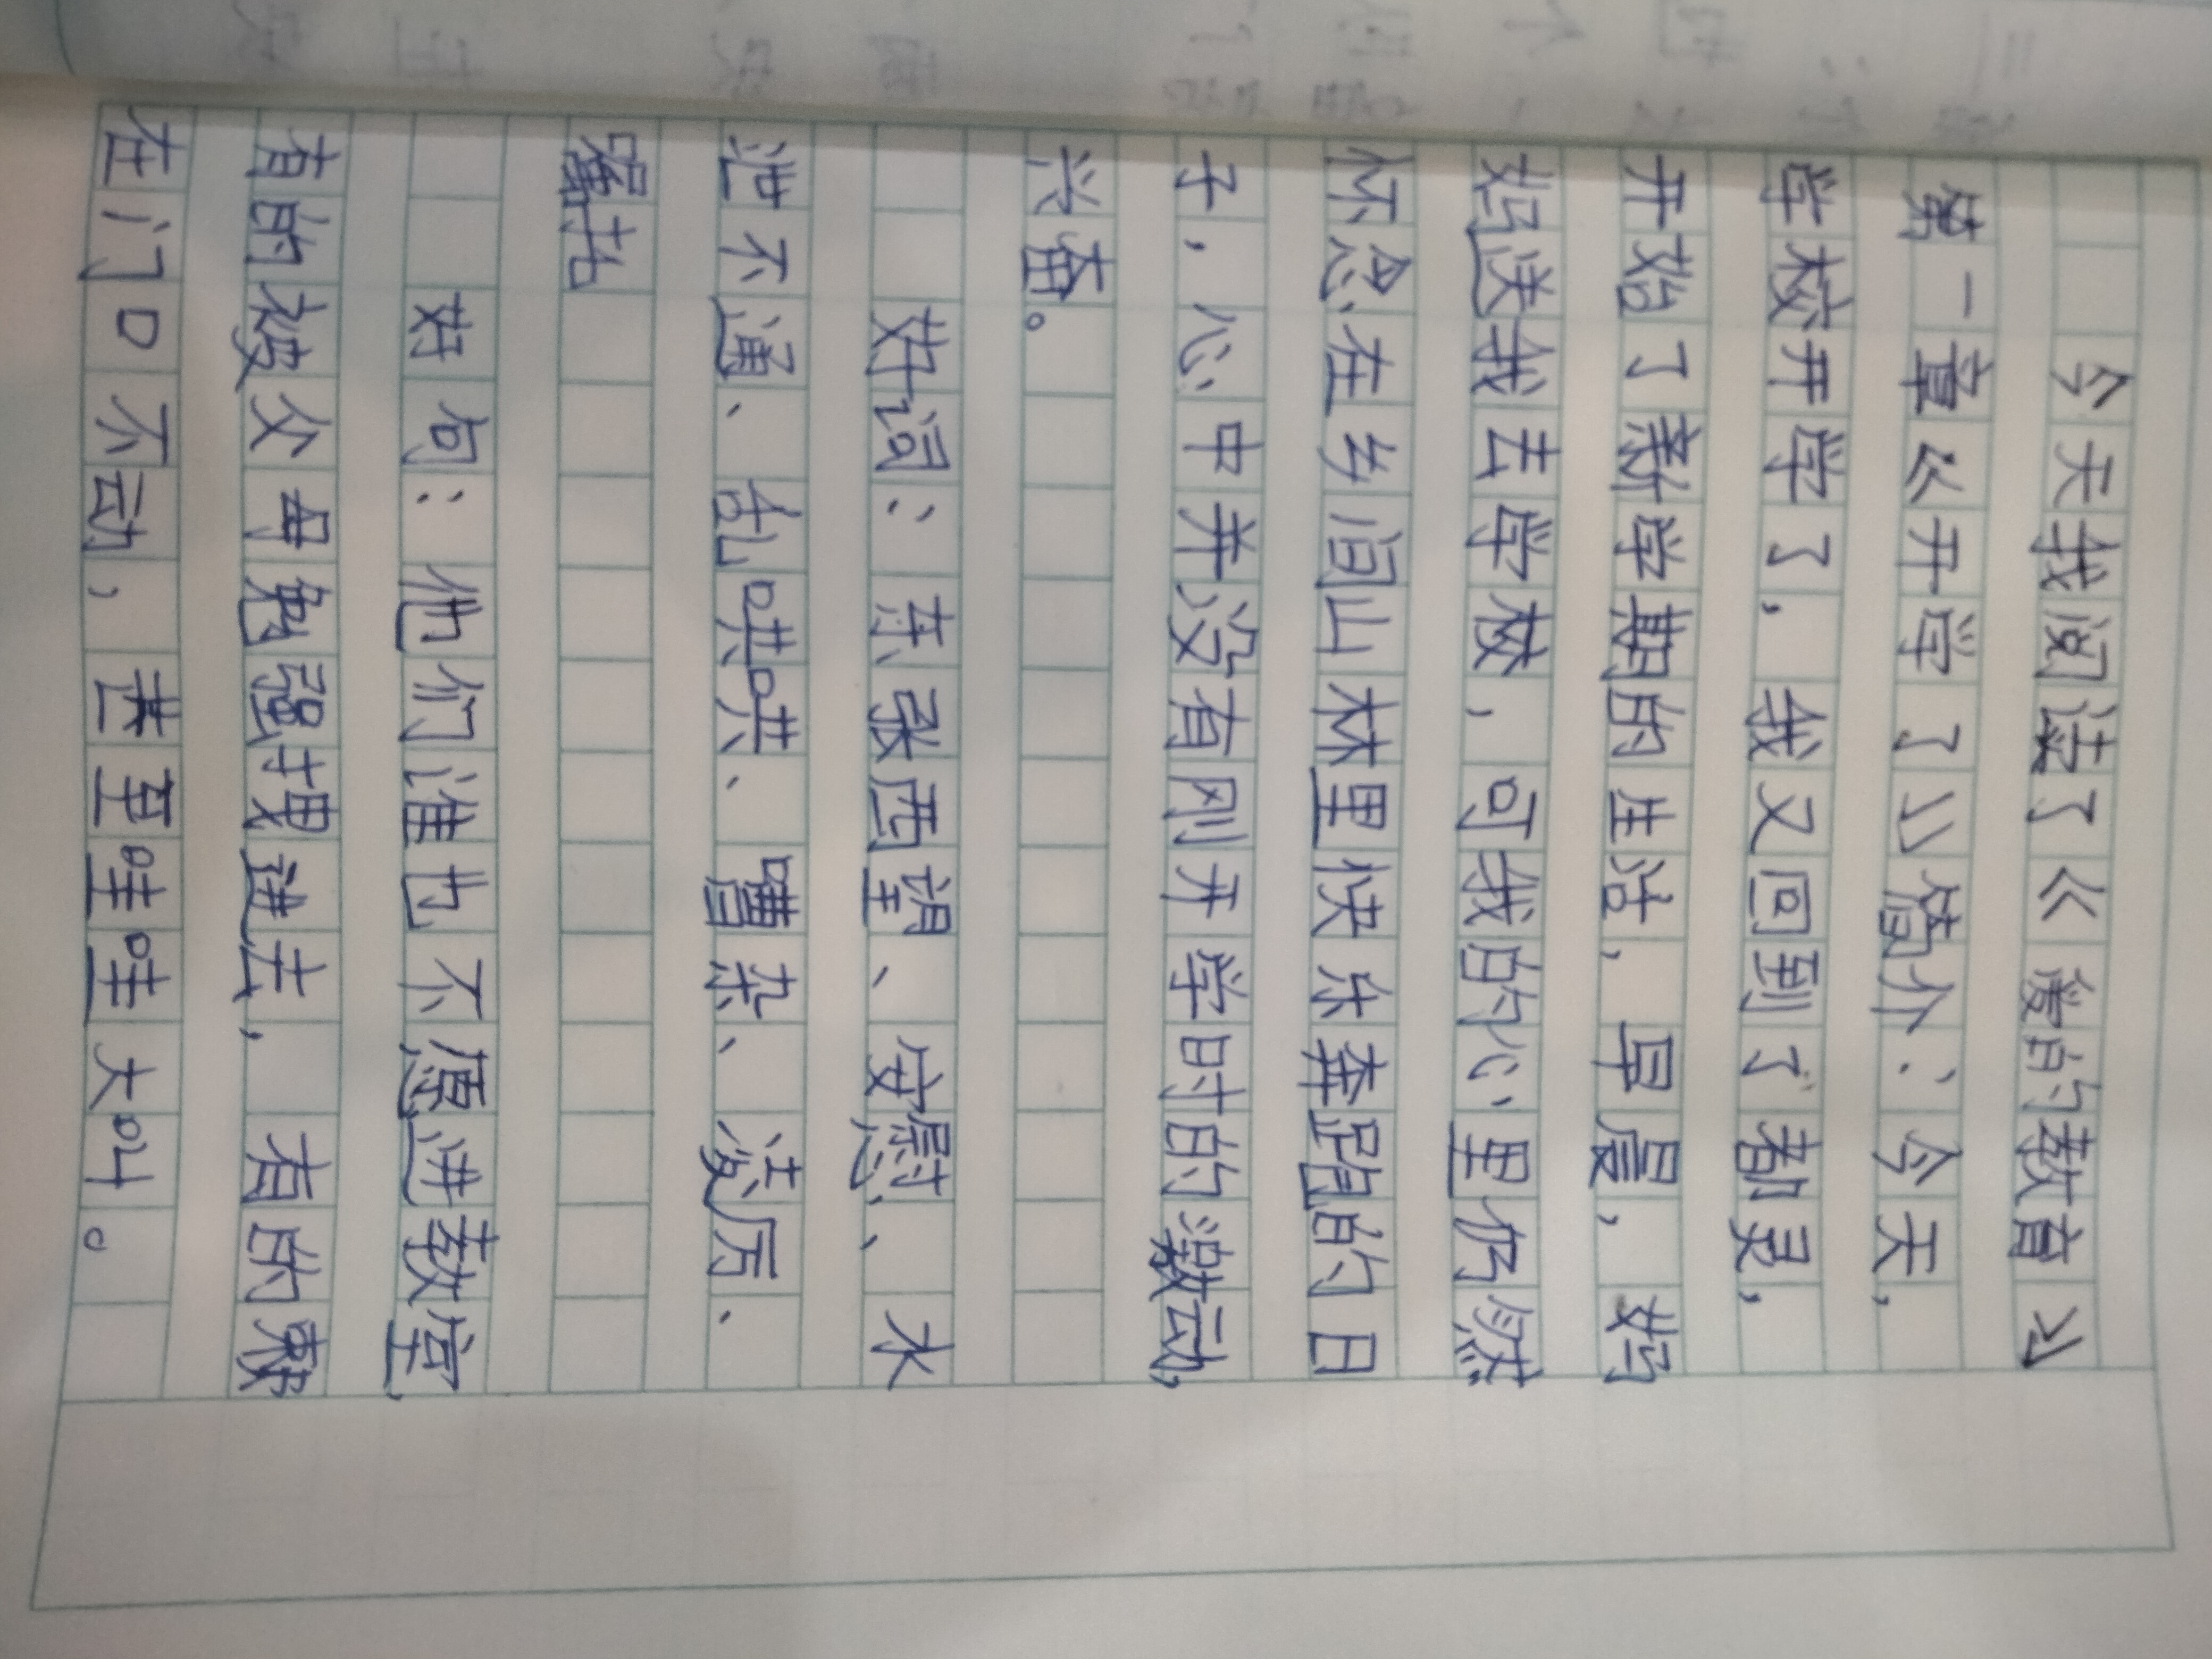 今天我阅读了《爱的教育》
第一章《开学了》简介：今天，
学校开学了，我又回到了都灵，
开始了新学期的生活，早晨，妈
妈送我去学校，可我的心里仍然
怀念在乡间山林里快乐奔跑的日
子，心中并没有刚开学时的激动，
兴奋。
好词：东张西望、安慰、水
泄不通、乱哄哄、嘈杂、凌厉、
骚扰
好句：他们谁也不愿进教堂，
有的被父母勉强拽进去，有的赖
在门口不动，甚至哇哇大叫。